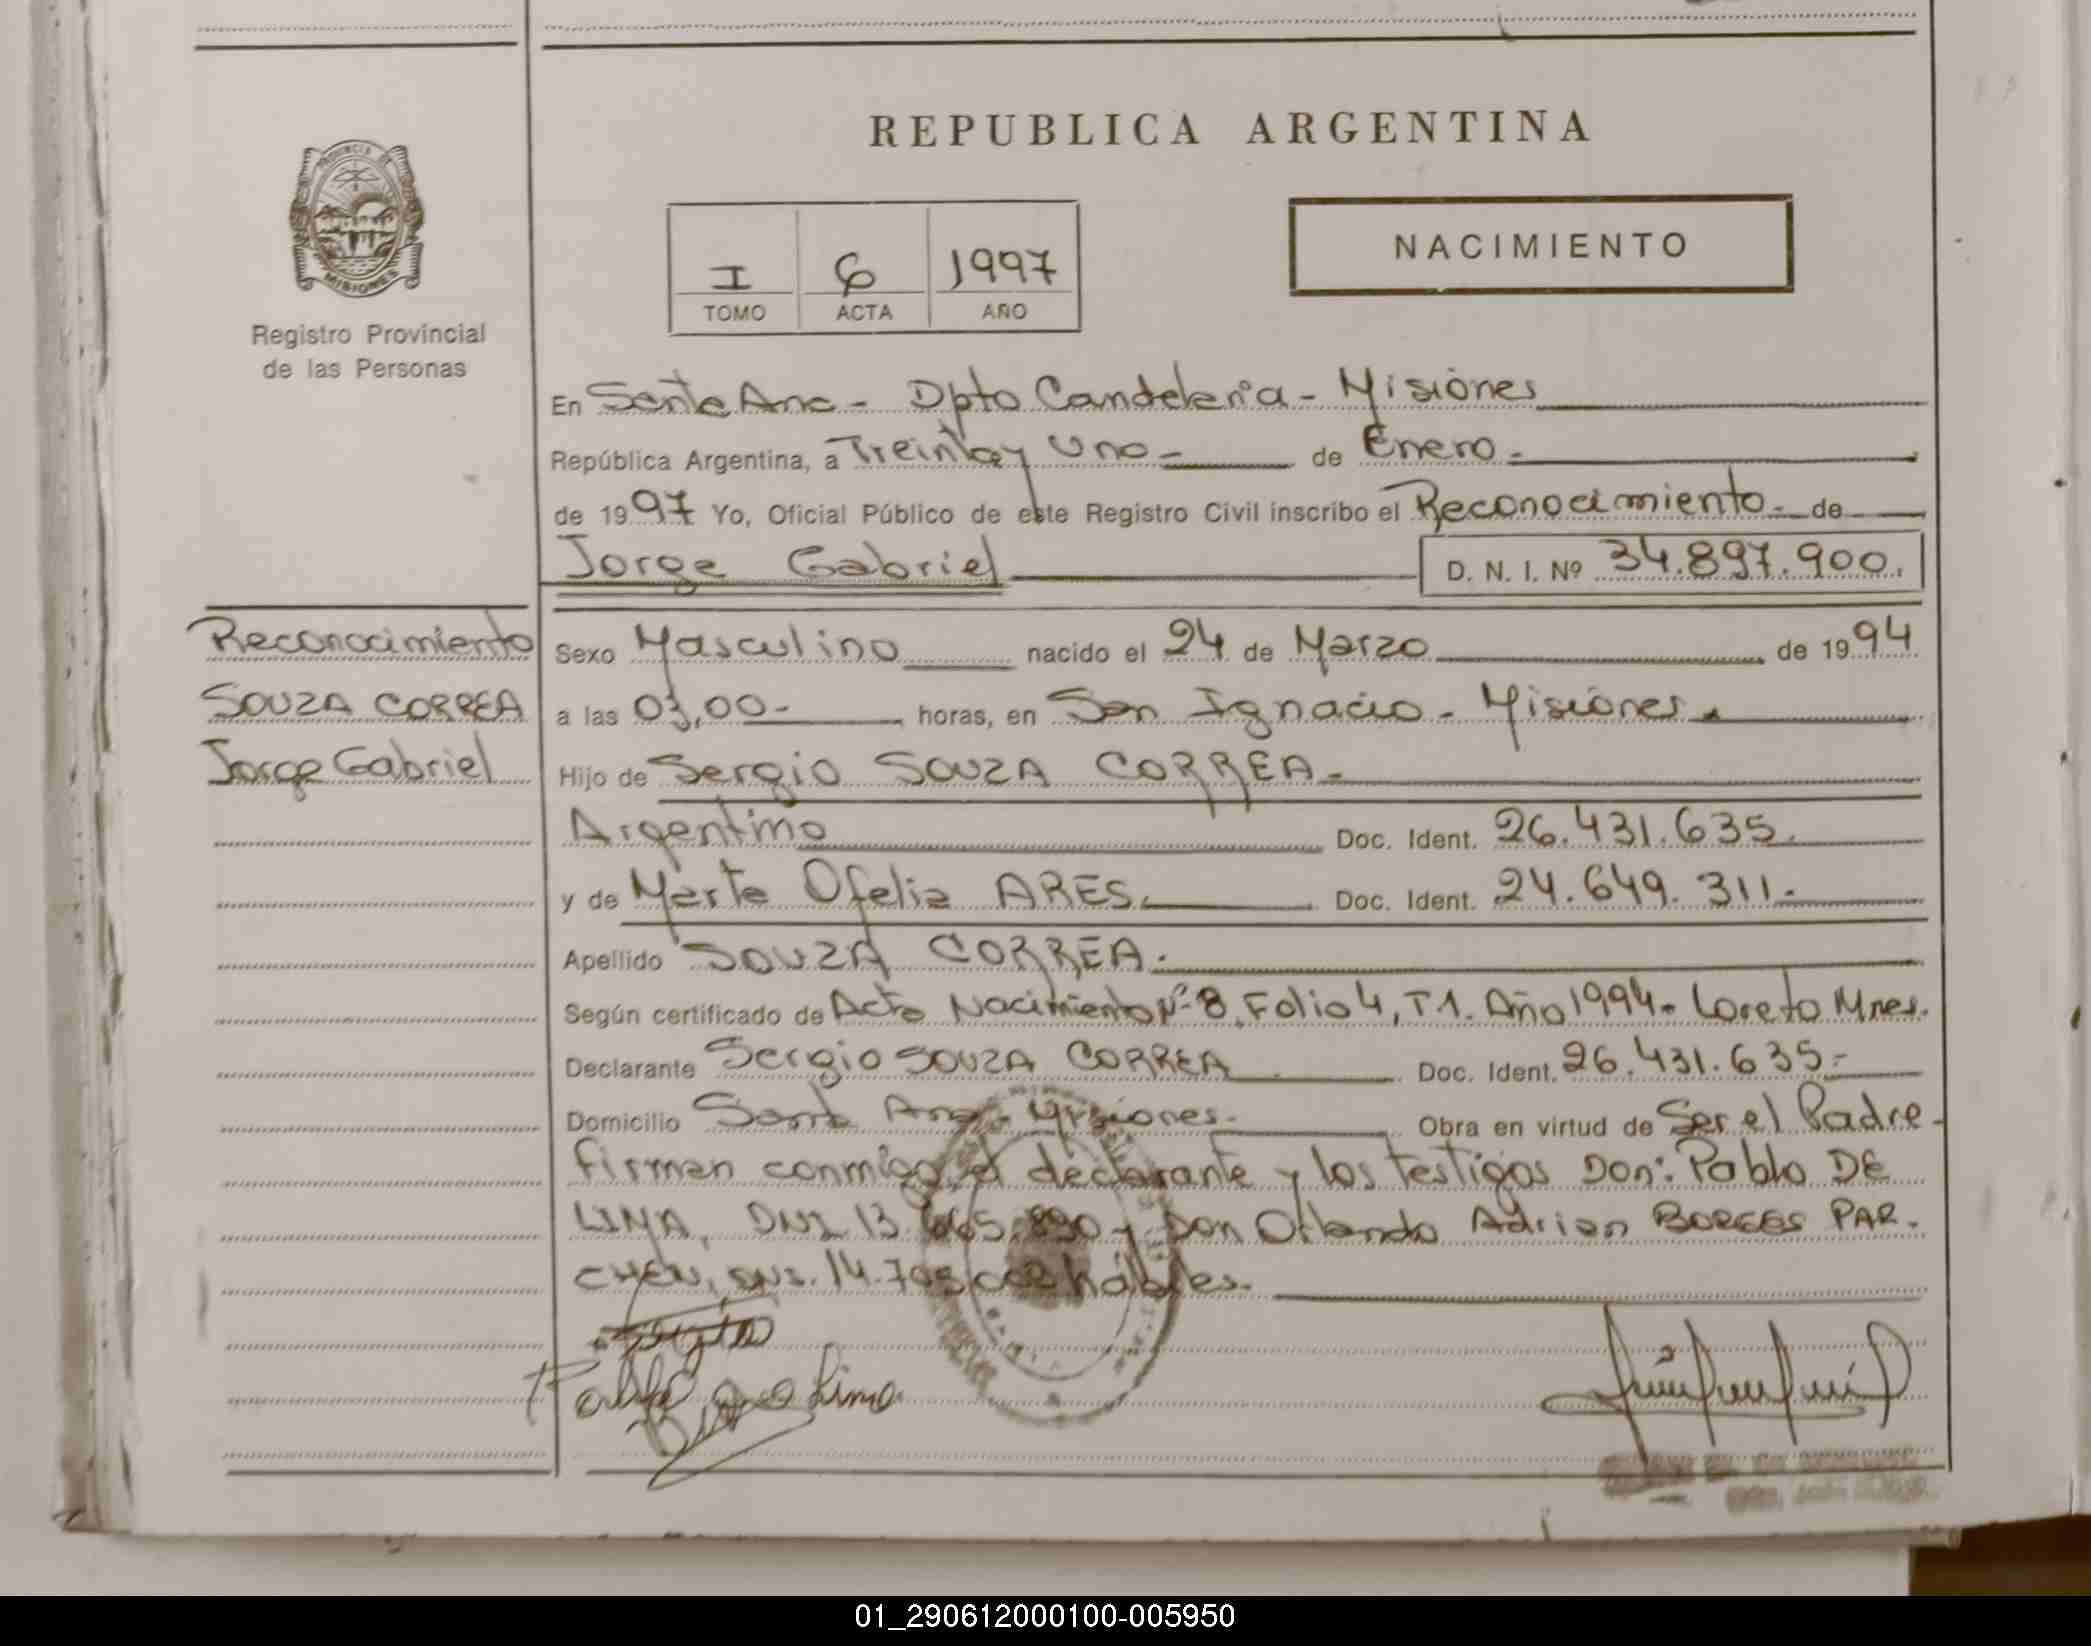 REPUBLICA ARGENTINA
PROVINCIA DE
MISIONES
Registro Provincial
de las Personas
I 6 1997
TOMO ACTA AÑO
NACIMIENTO
En Santa Ana - Dpto Candelaria - Misiones
República Argentina, a Treinta y Uno - de Enero -
de 1997 Yo, Oficial Público de este Registro Civil inscribo el Reconocimiento - de
Jorge Gabriel D. N. I. Nº 34.897.900.
Reconocimiento
SOUZA CORREA
Jorge Gabriel
Sexo Masculino nacido el 24 de Marzo de 1994
a las 03,00 - horas, en San Ignacio - Misiones.
Hijo de Sergio SOUZA CORREA -
Argentino Doc. Ident. 26.431.635.
y de Marta Ofelia ARES. Doc. Ident. 24.649.311 -
Apellido SOUZA CORREA.
Según certificado de Acta Nacimiento Nº 8, Folio 4, T1. Año 1994 - Loreto Mnes.
Declarante Sergio SOUZA CORREA Doc. Ident. 26.431.635 -
Domicilio Santa Ana - Misiones - Obra en virtud de Ser el Padre -
firman conmigo el declarante y los testigos Don: Pablo DE
LIMA, DNI 13.665.890 y Don Orlando Adrian BORGES PAR-
CHEN, DNI. 14.705.002 hábiles.
01_290612000100-005950